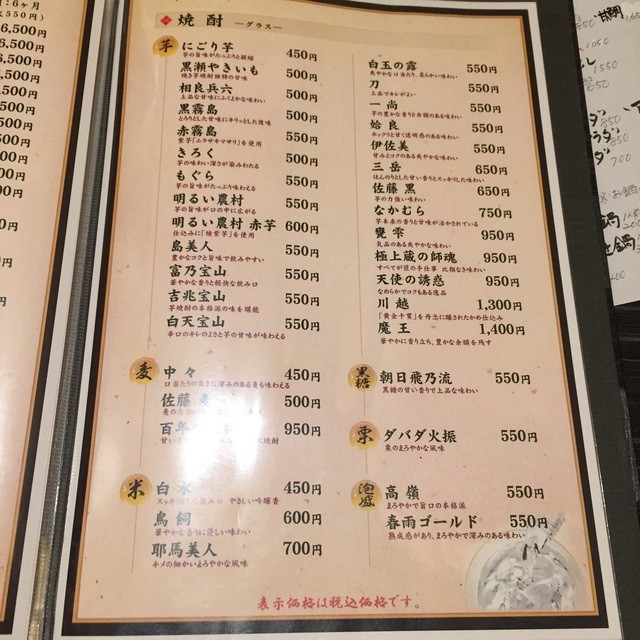 6ヶ月
550円)
6,500円
6,500円
6,500円
焼酎 ―グラス―
芋
にごり芋 450円
芋の旨味がたっぷりと凝縮
黒瀬やきいも 500円
焼き芋焼酎独特の甘味
相良兵六 500円
上品な甘味にふくよかな味わい
黒霧島 500円
とろりとした甘味にキリッとした後味
赤霧島 550円
紫芋「ムラサキマサリ」を使用
きろく 500円
芋の味わい深さが染みわたる
もぐら 550円
芋の旨味がたっぷり味わえる
明るい農村 550円
芋の旨味が口の中に広がる
明るい農村 赤芋 600円
仕込みに「綾紫芋」を使用
島美人 550円
豊かなコクと旨味で飲みやすい
富乃宝山 550円
華やかな香りと軽快な飲み口
吉兆宝山 550円
芋焼酎の本格派の味を堪能
白天宝山 550円
辛口のキレのよさと芋の甘味が味わえる
麦
中々 450円
口当たりの良さに深みのある麦も味わえる
佐藤 500円
百年 950円
米
白水 450円
やさしい吟醸香
鳥飼 600円
華やかな香りに優しい味わい
耶馬美人 700円
キメの細かいまろやかな風味
白玉の露 550円
爽やかな口当たり、柔らかい味わい
刀 550円
上品でキレがよい
一尚 550円
芋の豊かな香りと余韻のある味わい
姶良 550円
ホックリと甘く透明感のある味わい
伊佐美 550円
甘みとコクのある爽やかな味わい
三岳 650円
ほんのりとした甘い香りとスッキリした味わい
佐藤 黒 650円
芋の力強い味わい
なかむら 750円
芋本来の香りと甘味が活かされている
甕雫 950円
気品のある爽やかな味わい
極上蔵の師魂 950円
すべてが匠の手仕事 比類なき味わい
天使の誘惑 950円
なめらかでコクもある逸品
川越 1,300円
「黄金千貫」を丹念に醸されたかめ仕込み
魔王 1,400円
華やかに香り立ち、豊かな余韻を残す
黒糖
朝日飛乃流 550円
黒糖の甘い香りで上品な味わい
栗
ダバダ火振 550円
栗のまろやかな風味
泡盛
高嶺 550円
まろやかで旨口の本格派
春雨ゴールド 550円
熟成感があり、まろやかで深みのある味わい
表示価格は税込価格です。